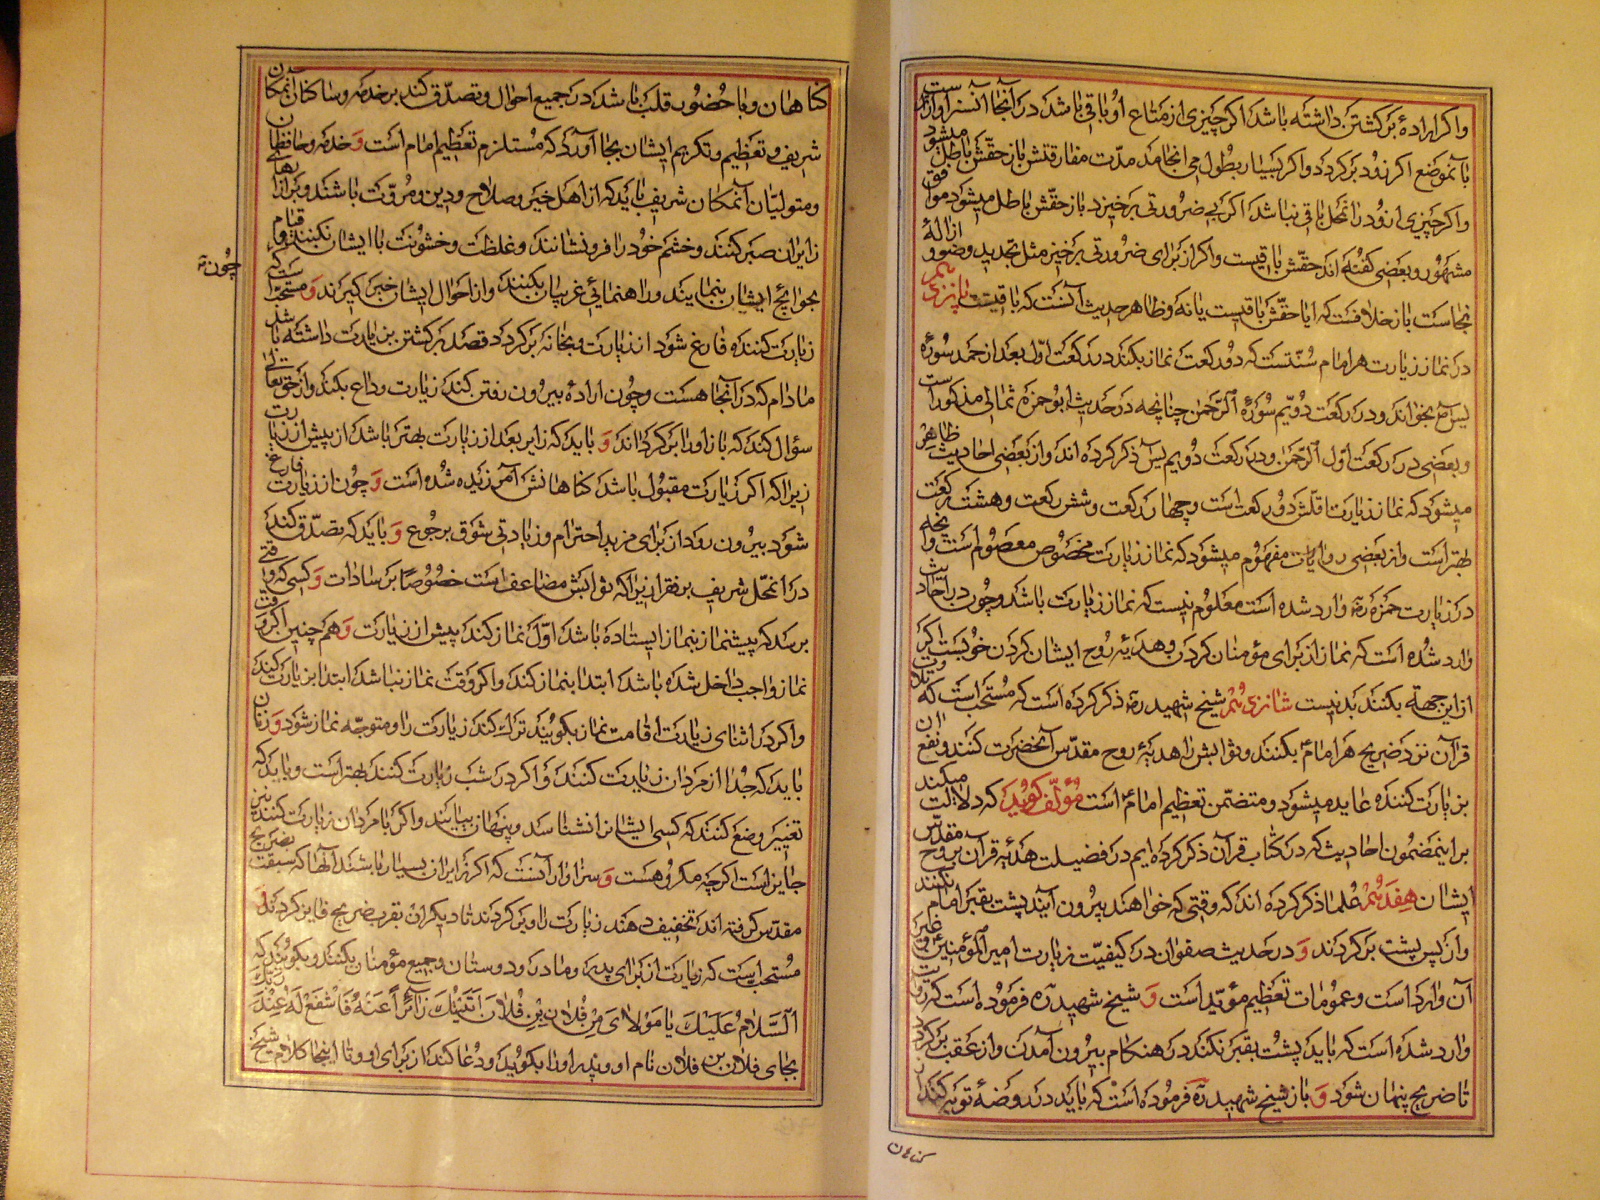 واکر ارادهٔ برکشتن داشته باشد اکر چیزی از متاع او باقی باشد در آنجا آنسزاوارست
بآنموضع اکر زود برکردد واکر بسیار بطول می انجامد مدّت مفارقتش باز حقّش باطل میشود
واکر چیزی از ود رانمحل باقی نباشد اکر بی ضرورتی برخیزد باز حقّش باطل میشود موافق
مشهور و بعضی کفته اند حقّش باقیست واکر از برای ضرورتی برخیز مثل تجدید وضو و ازالهٔ
نجاست باز خلافست که ایا حقّش باقیست یا نه وظاهر حدیث آنست که باقیست پانزدهم
در نماز زیارت هر امام سنّتست که دو رکعت نماز بکند در رکعت اوّل بعد از حمد سورهٔ
یس بخواند و در رکعت دویم سوره الرّحمن چنانچه در حدیث ابو حمزه ثمالی مذکور است
و بعضی در رکعت اوّل الرّحمن و در رکعت دویم یس ذکر کرده اند و از بعضی احادیث ظاهر
میشود که نماز زیارت اقلّش دو رکعت است و چهار رکعت و شش رکعت و هشت رکعت
بهتر است و از بعضی روایات مفهوم میشود که نماز زیارت مخصوص معصوم است و آنچه
در زیارت حمزه ره وارد شده است معلوم نیست که نماز زیارت باشد و چون در احادیث
وارد شده است که نماز از برای مؤمنان کردن و هدیه روح ایشان کردن خوبست اکر
از این جهة بکنند بد نیست شانزدهم شیخ شهید ره ذکر کرده است که مستحب است که تلاوت
قرآن نزد ضریح هر امام بکنند و ثوابش را هدیهٔ روح مقدّس آنحضرت کنند و نفع آن
بزیارت کننده عاید میشود و متضمّن تعظیم امام است مؤلّف کوید که دلالت میکند
براینمضمون احادیث که در کتاب قرآن ذکر کرده ایم در فضیلت هدیه قرآن بروح مقدّس
ایشان هفدهم علما ذکر کرده اند که وقتی که خواهند بیرون آیند پشت بقبر امام نکنند
و از پس پشت برکردند و در حدیث صفوان در کیفیّت زیارت امیر المؤمنین و غیر
آن وارد است و عمومات تعظیم مؤیّد است و شیخ شهید ره فرموده است که روایت
وارد شده است که باید پشت بقبر نکند در هنکام بیرون آمدن و از عقب برکردد
تا ضریح پنهان شود و باز شیخ شهید ره فرموده است که باید در روضه توبه کند از
کناهان
کناهان و با حضور قلب باشد در جمیع احوال و تصدّق کند بر خدمه و ساکنان آنمکان
شریف و تعظیم و تکریم ایشان بجا آورد که مستلزم تعظیم امام است و خدمه و حافظان
و متولیان آنمکان شریف باید که از اهل خیر و صلاح و دین و مروّت باشند و بر اذاهای
زایران صبر کنند و خشم خود را فرو نشانند و غلظت و خشونت با ایشان نکنند و قیام
چون
بحوایج ایشان بنمایند و راهنمائی غریبان بکنند و از احوال ایشان خبر کیرند و مستحبّست که
زیارت کننده فارغ شود از زیارت و بخانه برکردد قصد برکشتن بزیارت داشته باشد
مادام که در آنجا هست و چون ارادهٔ بیرون رفتن کند زیارت وداع بکند و از حق تعالی
سؤال کند که باز او را برکرداند و باید که زایر بعد از زیارت بهتر باشد از پیش از زیارت
زیرا که اکر زیارت مقبول باشد کناهانش آمرزیده شده است و چون از زیارت فارغ
شود بیرون رود از برای مزید احترام و زیادتی شوق برجوع و باید که تصدّق کند
در انمحلّ شریف بر فقرا زیرا که ثوابش مضاعف است خصوصًا بر سادات و کسی که وقتی
برسد که پیشنماز بنماز ایستاده باشد اوّل نماز کند پیش از زیارت و هم چنین اکر وقت
نماز واجب داخل شده باشد ابتدا بنماز کند و اکر وقت نماز نباشد ابتدا بزیارت کند
و اکر در اثنای زیارت اقامت نماز بکویند ترک کند زیارت را و متوجّه نماز شود و زنان
باید که جدا از مردان زیارت کنند و اکر در شب زیارت کنند بهتر است و باید که
تغییر وضع کنند که کسی ایشان را نشناسد و پنهان بیایند و اکر با مردان زیارت کنند نیز
جایز است اکر چه مکروهست و سزاوار آنست که اکر زایران بسیار باشند آنها که سبقت بضریح
مقدّس کرفته اند تخفیف دهند زیارت را و برکردند تا دیکران بقرب ضریح فایز کردند و
مستحب است که زیارت از برای پدر و مادر و دوستان و جمیع مؤمنان بکنند و بکویند که
السّلام علیک یا مولای من فلان بن فلان اتیتک زائرًا عنه فاشفع له عند ربّک
بجای فلان بن فلان نام او و پدر او را بکوید و دعا کند از برای او و تا اینجا کلام شیخ